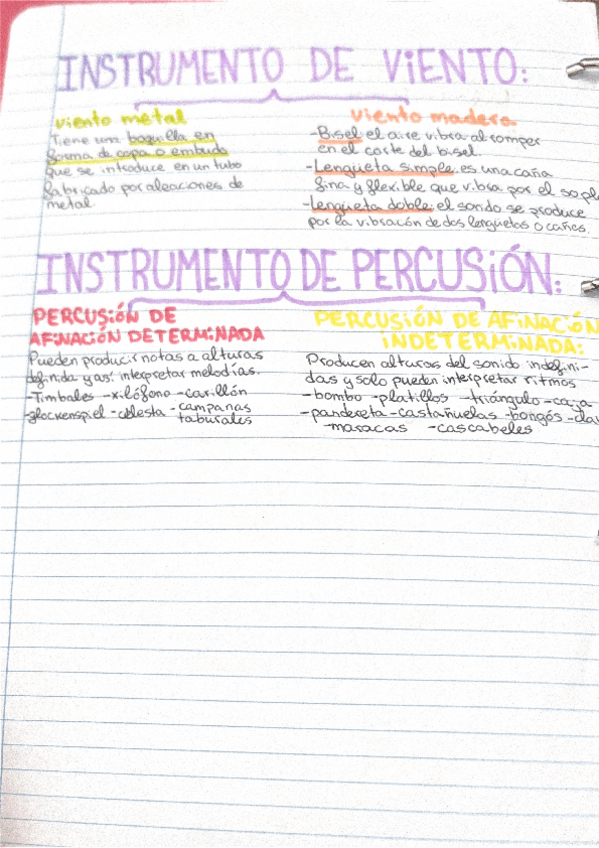 INSTRUMENTO DE VIENTO:
viento metal
Tiene una boquilla en
forma de copa o embudo
que se introduce en un tubo
fabricado por aleaciones de
metal
viento madera.
-Bisel: el aire vibra al romper
en el corte del bisel.
-Lengüeta simple: es una caña
fina y flexible que vibra por el sopl
-Lengüeta doble: el sonido se produce
por la vibración de dos lengüetas o cañas.
INSTRUMENTO DE PERCUSIÓN:
PERCUSIÓN DE
AFINACIÓN DETERMINADA
Pueden producir notas a alturas
definida y así interpretar melodías.
-Timbales -xilófono -carillón
-glockenspiel -celesta -campanas
taburales
PERCUSIÓN DE AFINACIÓN
INDETERMINADA:
Producen alturas del sonido indefini-
das y solo pueden interpretar ritmos
-bombo -platillos -triángulo -caja
-pandereta -castañuelas -bongós -clav
-maracas -cascabeles